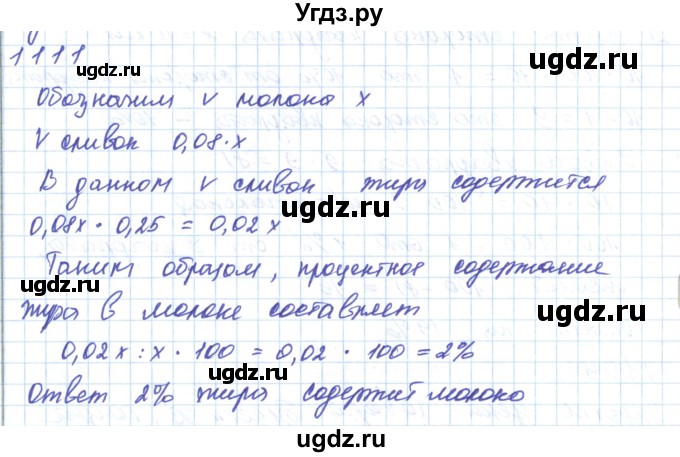 Угдз.ру
1111
ugdz.ru
ugdz.ru
Обозначим V молока x
ugdz.ru
V сливок 0,08·x
В данном V сливок жира содержится
ugdz.ru
0,08x · 0,25 = 0,02x
Таким образом, процентное содержание
ugdz.ru
жира в молоке составляет
0,02x : x · 100 = 0,02 · 100 = 2%
ugdz.ru
Ответ 2% жира содержит молоко
ugdz.ru